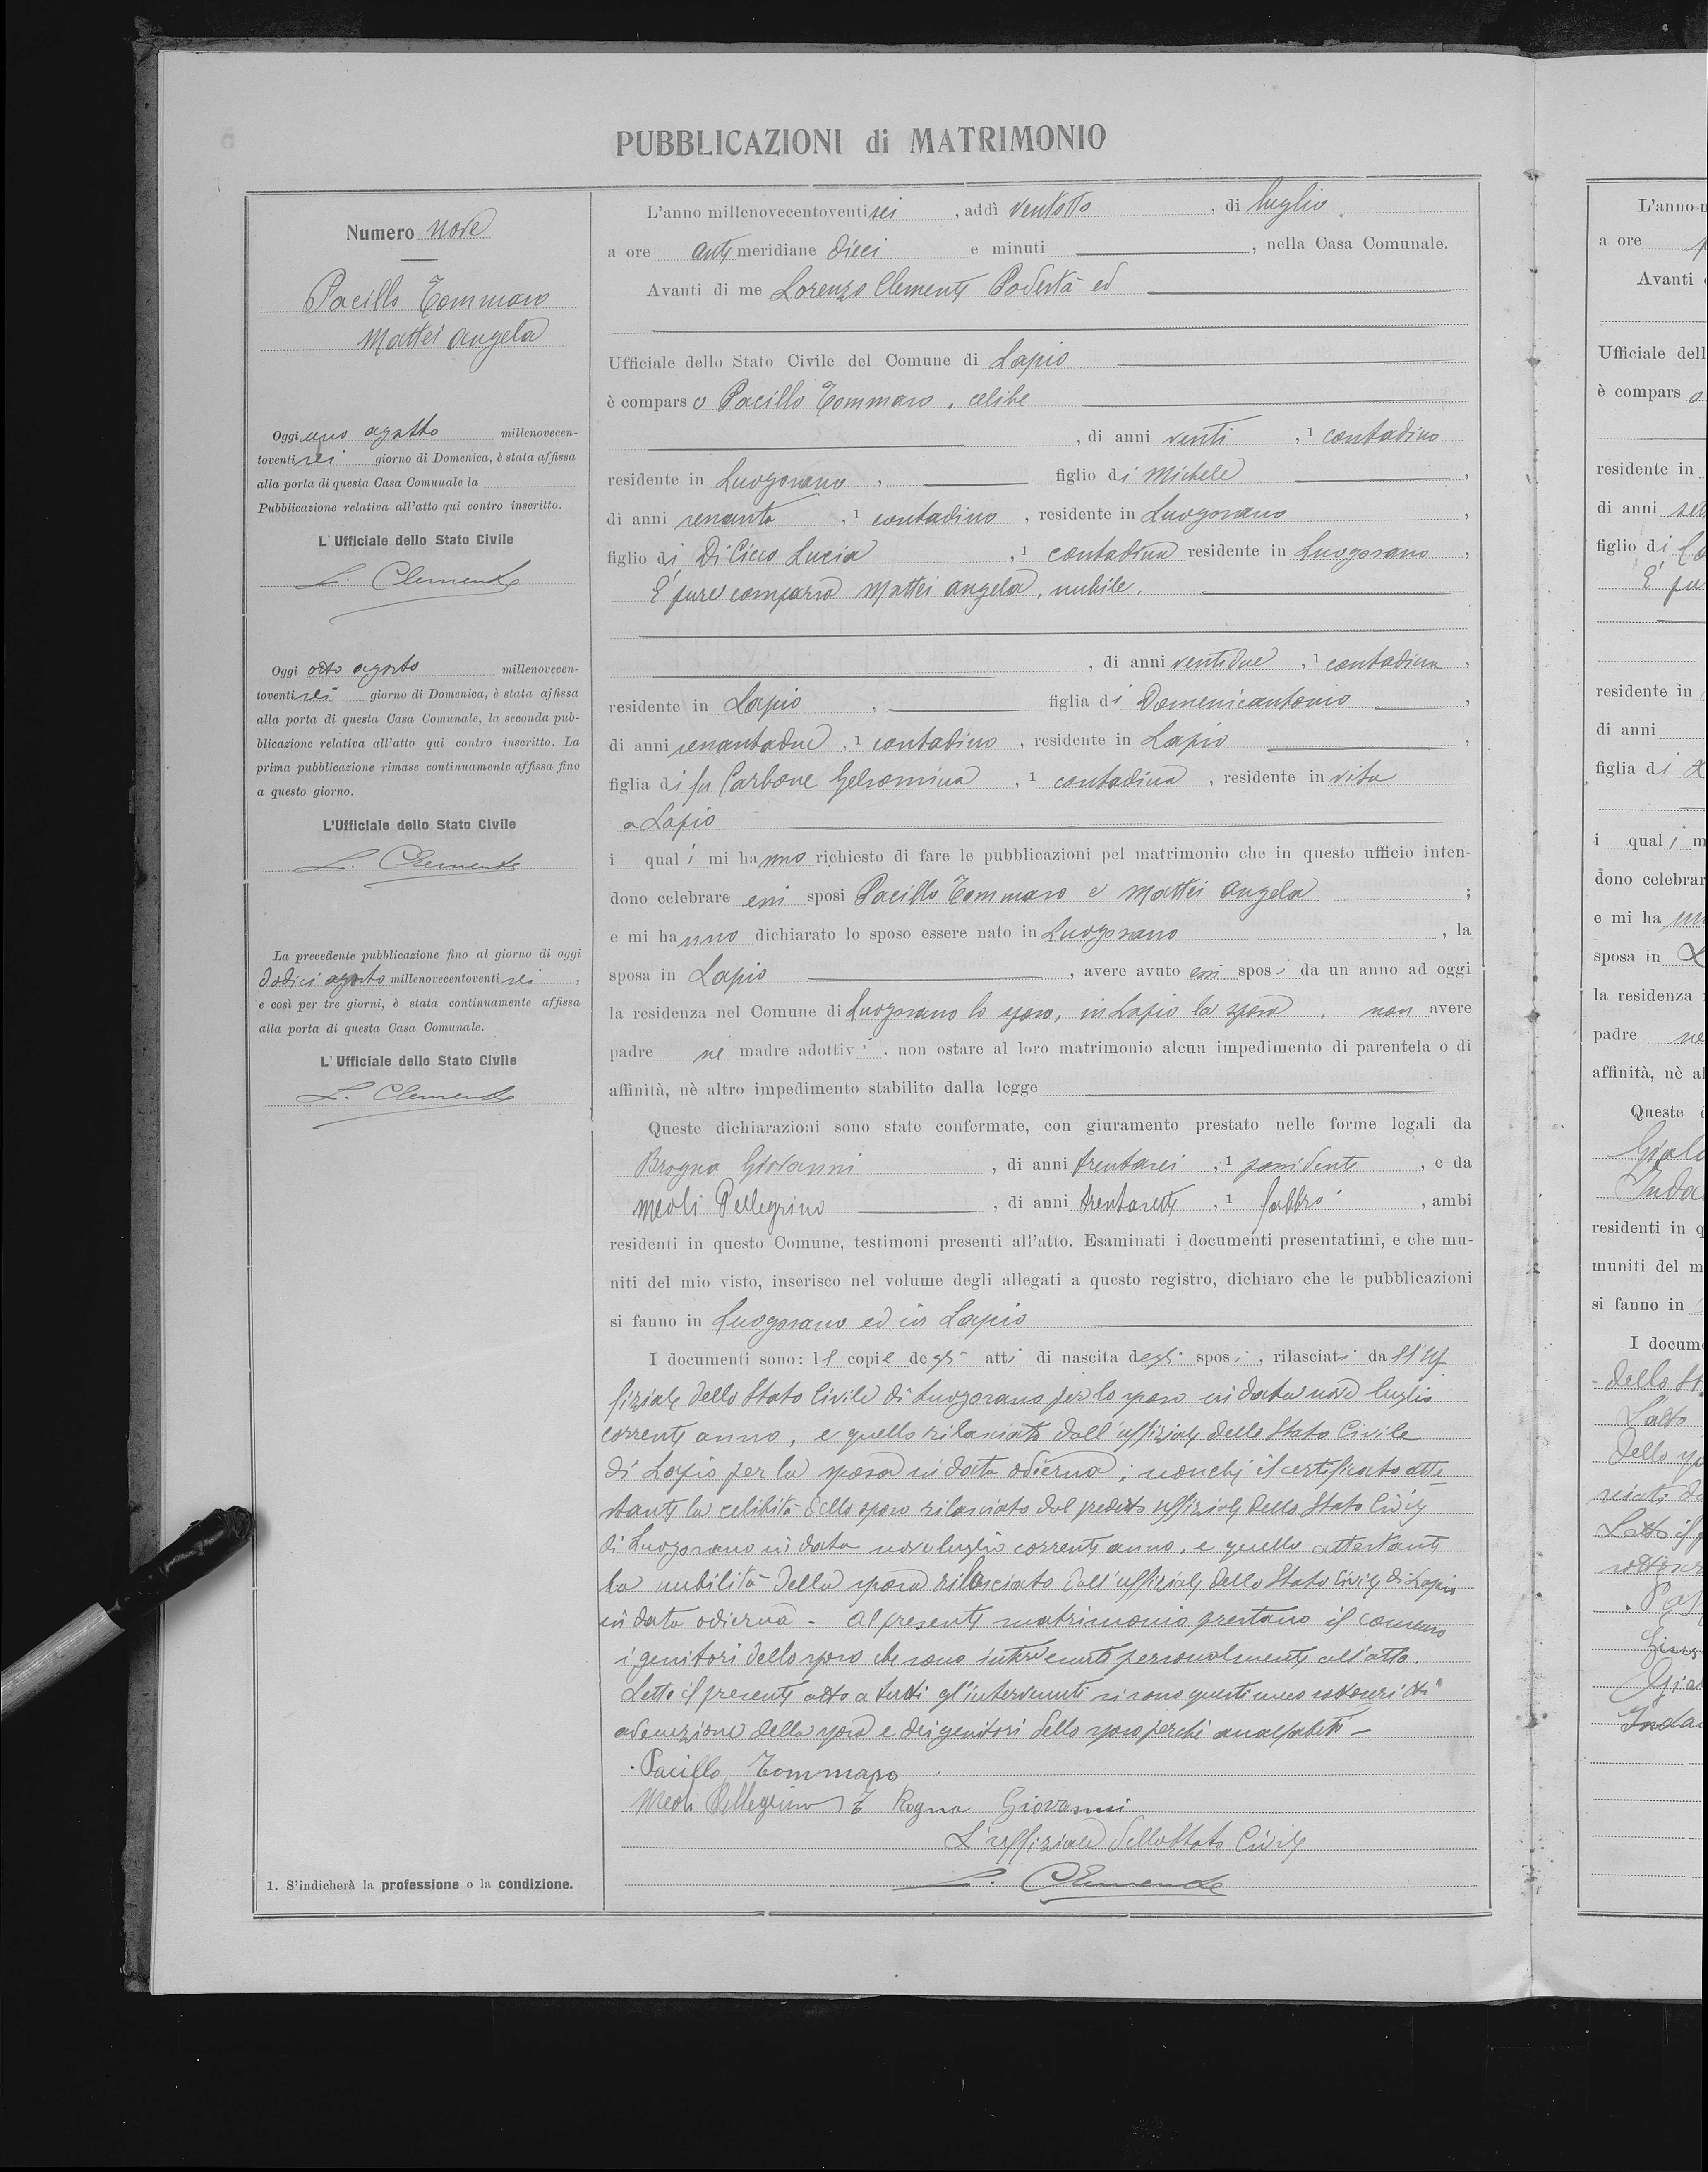 PUBBLICAZIONI di MATRIMONIO
Numero nove
Pacillo Tommaso
Mattei Angela
Oggi uno agosto millenovecen-
toventisei giorno di Domenica, è stata affissa
alla porta di questa Casa Comunale la
Pubblicazione relativa all'atto qui contro inscritto.
L'Ufficiale dello Stato Civile
L. Clemente
Oggi otto agosto millenovecen-
toventisei giorno di Domenica, è stata affissa
alla porta di questa Casa Comunale, la seconda pub-
blicazione relativa all'atto qui contro inscritto. La
prima pubblicazione rimase continuamente affissa fino
a questo giorno.
L'Ufficiale dello Stato Civile
L. Clemente
La precedente pubblicazione fino al giorno di oggi
dodici agosto millenovecentoventisei,
e così per tre giorni, è stata continuamente affissa
alla porta di questa Casa Comunale.
L'Ufficiale dello Stato Civile
L. Clemente
1. S'indicherà la professione o la condizione.
L'anno millenovecentoventisei, addì ventotto, di luglio
a ore antimeridiane dieci e minuti, nella Casa Comunale.
Avanti di me Lorenzo Clemente Podestà ed
Ufficiale dello Stato Civile del Comune di Lapio
è comparso Pacillo Tommaso, celibe
, di anni venti, 1 contadino
residente in Luogosano, figlio di Michele,
di anni sessanta, 1 contadino, residente in Luogosano,
figlio di Di Cicco Lucia, 1 contadina residente in Luogosano,
E' pure comparsa Mattei Angela, nubile.
, di anni ventidue, 1 contadina,
residente in Lapio, figlia di Domenicantonio,
di anni sessantadue, 1 contadino, residente in Lapio,
figlia di fu Carbone Gelsomina, 1 contadina, residente in vita
a Lapio
i quali mi hanno richiesto di fare le pubblicazioni pel matrimonio che in questo ufficio inten-
dono celebrare essi sposi Pacillo Tommaso e Mattei Angela;
e mi hanno dichiarato lo sposo essere nato in Luogosano, la
sposa in Lapio, avere avuto essi sposi da un anno ad oggi
la residenza nel Comune di Luogosano lo sposo, in Lapio la sposa, non avere
padre nè madre adottivi, non ostare al loro matrimonio alcun impedimento di parentela o di
affinità, nè altro impedimento stabilito dalla legge
Queste dichiarazioni sono state confermate, con giuramento prestato nelle forme legali da
Brogna Giovanni, di anni trentasei, 1 possidente, e da
Meoli Pellegrino, di anni trentasette, 1 fabbro, ambi
residenti in questo Comune, testimoni presenti all'atto. Esaminati i documenti presentatimi, e che mu-
niti del mio visto, inserisco nel volume degli allegati a questo registro, dichiaro che le pubblicazioni
si fanno in Luogosano ed in Lapio
I documenti sono: le copie degli atti di nascita degli sposi, rilasciati dall'Uf
fiziale dello Stato Civile di Luogosano per lo sposo in data nove luglio
corrente anno, e quello rilasciato dall'uffiziale dello Stato Civile
di Lapio per la sposa in data odierna; nonchè il certificato atte
stante la celibità dello sposo rilasciato dal predetto uffiziale dello Stato Civile
di Luogosano in data nove luglio corrente anno, e quello attestante
la nubilità della sposa rilasciato dall'uffiziale dello Stato Civile di Lapio
in data odierna - Al presente matrimonio prestano il consenso
i genitori dello sposo che sono intervenuti personalmente all'atto.
Letto il presente atto a tutti gl'intervenuti si sono questi meco sottoscritti
ad eccezione della sposa e dei genitori dello sposo perchè analfabeti -
Pacillo Tommaso
Meoli Pellegrino Brogna Giovanni
L'uffiziale dello Stato Civile
L. Clemente
L'anno
a ore
Avanti
Ufficiale dell
è compars o
residente in
di anni
figlio di
E' pu
residente in
di anni
figlia di
i quali m
dono celebrar
e mi ha
sposa in
la residenza
padre ne
affinità, nè al
Queste
residenti in q
muniti del m
si fanno in
I docum
dello St